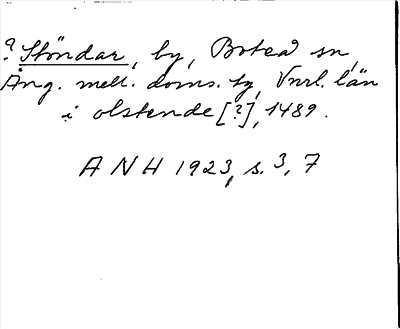 ? Stöndar, by, Boteå sn,
Ång. mell. doms. tg, Vnrl. län
i olstende [?], 1489.
A N H 1923, s. 3, 7